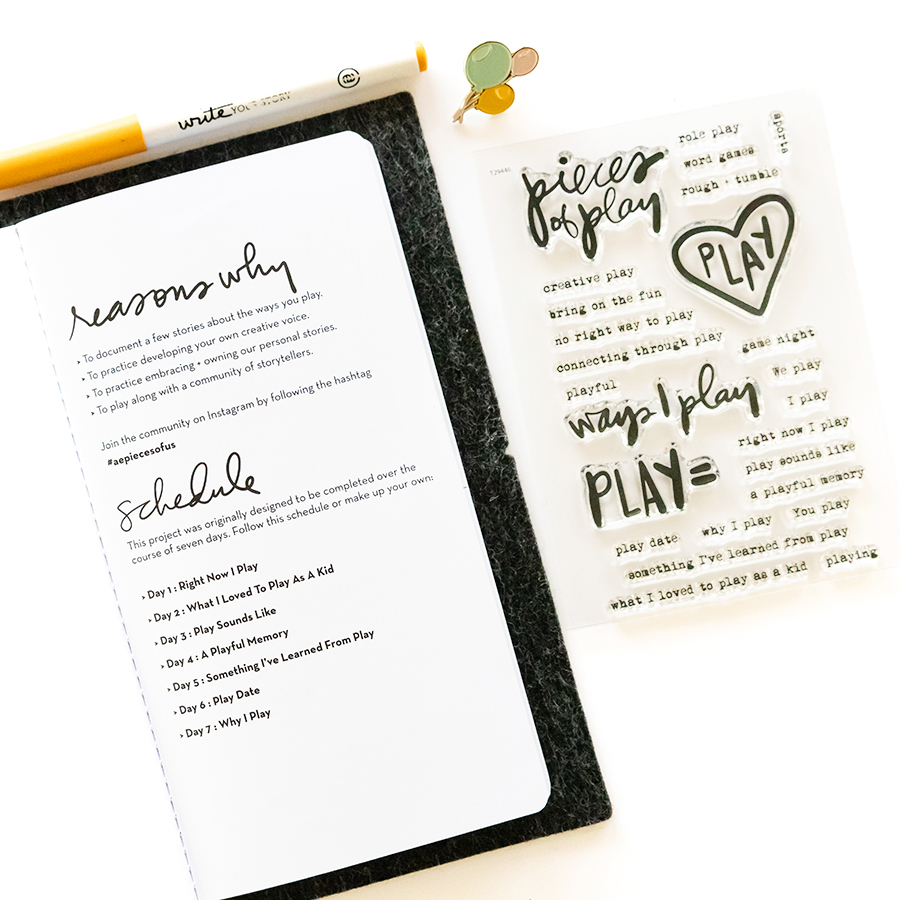 write YOUR STORY
reasons why
› To document a few stories about the ways you play.
› To practice developing your own creative voice.
› To practice embracing + owning our personal stories.
› To play along with a community of storytellers.
Join the community on Instagram by following the hashtag
#aepiecesofus
schedule
This project was originally designed to be completed over the
course of seven days. Follow this schedule or make up your own:
› Day 1 : Right Now I Play
› Day 2 : What I Loved To Play As A Kid
› Day 3 : Play Sounds Like
› Day 4 : A Playful Memory
› Day 5 : Something I've Learned From Play
› Day 6 : Play Date
› Day 7 : Why I Play
pieces
of play
role play
word games
rough + tumble
sports
PLAY
creative play
bring on the fun
no right way to play
connecting through play
playful
game night
We play
I play
ways I play
PLAY=
right now I play
play sounds like
a playful memory
You play
why I play
play date
something I've learned from play
what I loved to play as a kid
playing